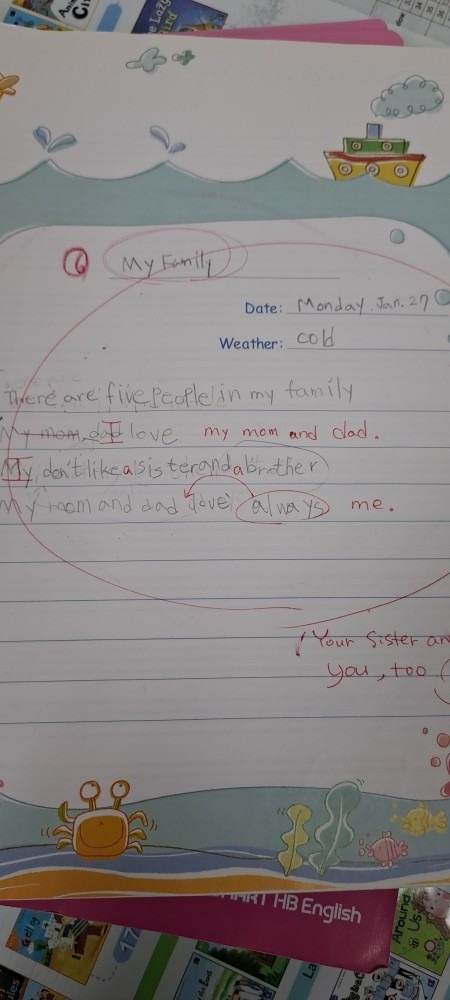 The Lazy
Bird
6
My Family
Date: Monday. Jan. 27
Weather: cold
There are five people in my family
My mom, dad I love my mom and dad.
My I don't like a sister and a brother
My mom and dad love always me.
Your Sister an
you, too
SMART HB English
Around
Us
17